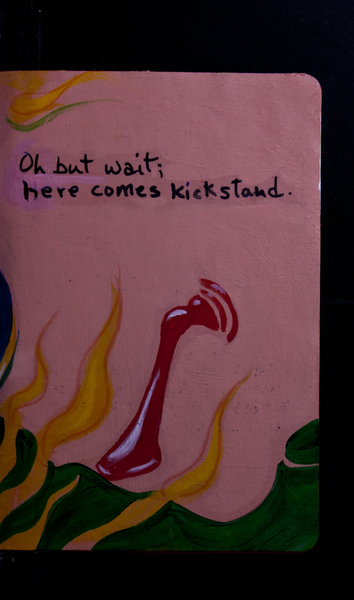 Oh but wait;
here comes kickstand.